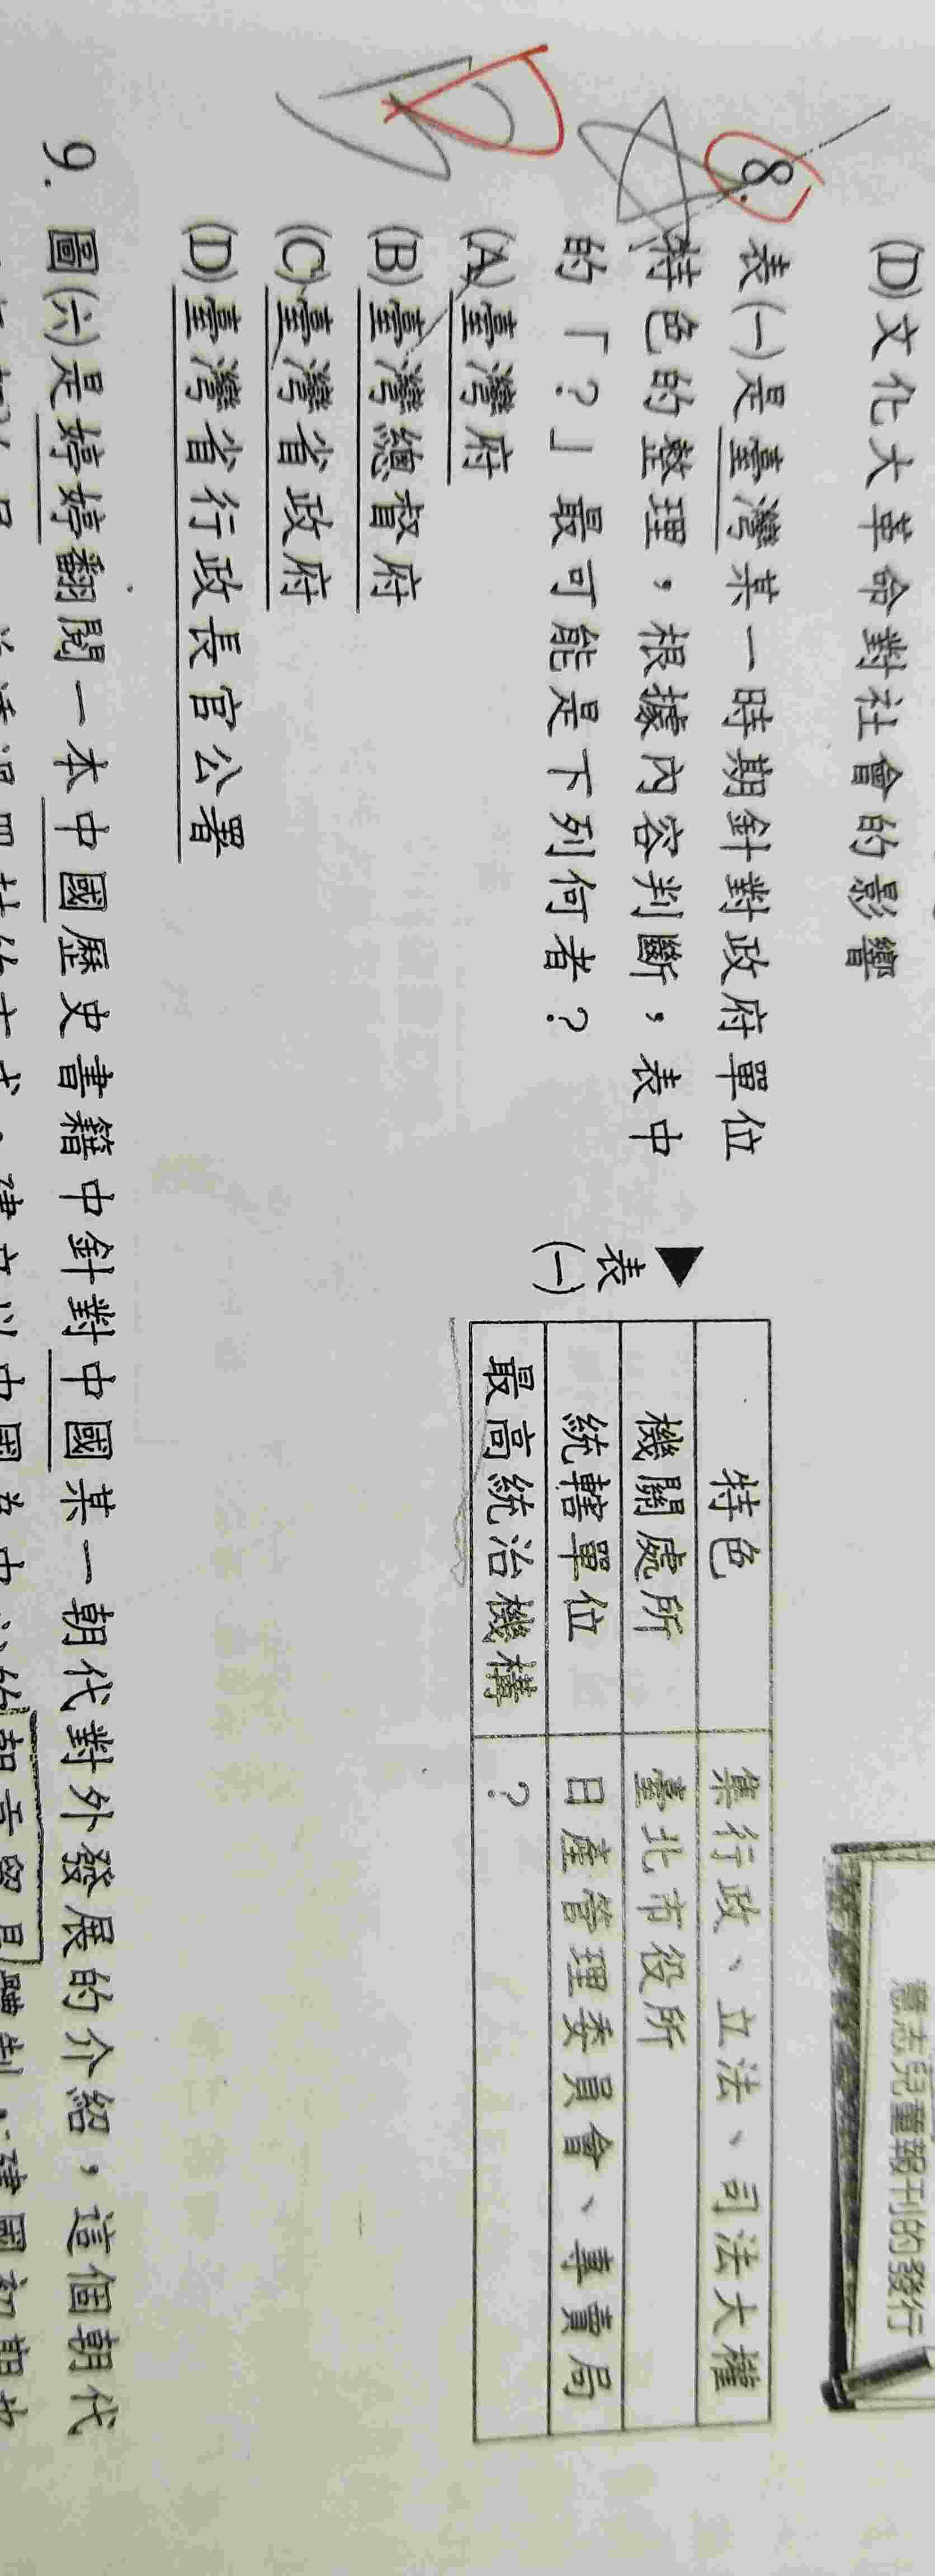 (D)文化大革命對社會的影響
意志兒童報刊的發行
8. 表(一)是臺灣某一時期針對政府單位
特色的整理，根據內容判斷，表中
的「?」最可能是下列何者?
(A)臺灣府
(B)臺灣總督府
(C)臺灣省政府
(D)臺灣省行政長官公署
▲表(一)
特色 集行政、立法、司法大權
機關處所 臺北市役所
統轄單位 日產管理委員會、專賣局
最高統治機構 ?
D
9. 圖(六)是婷婷翻閱一本中國歷史書籍中針對中國某一朝代對外發展的介紹，這個朝代